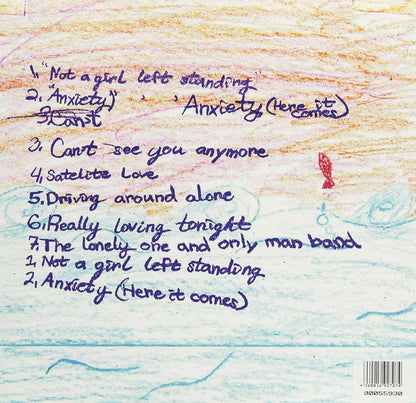 1, "Not a girl left standing"
2, "Anxiety," , , Anxiety, (Here it comes)
3, Can't
3, Can't see you anymore
4, Satelite Love
5, Driving around alone
6, Really loving tonight
7, The lonely one and only man band
1, Not a girl left standing
2, Anxiety (Here it comes)
00055930